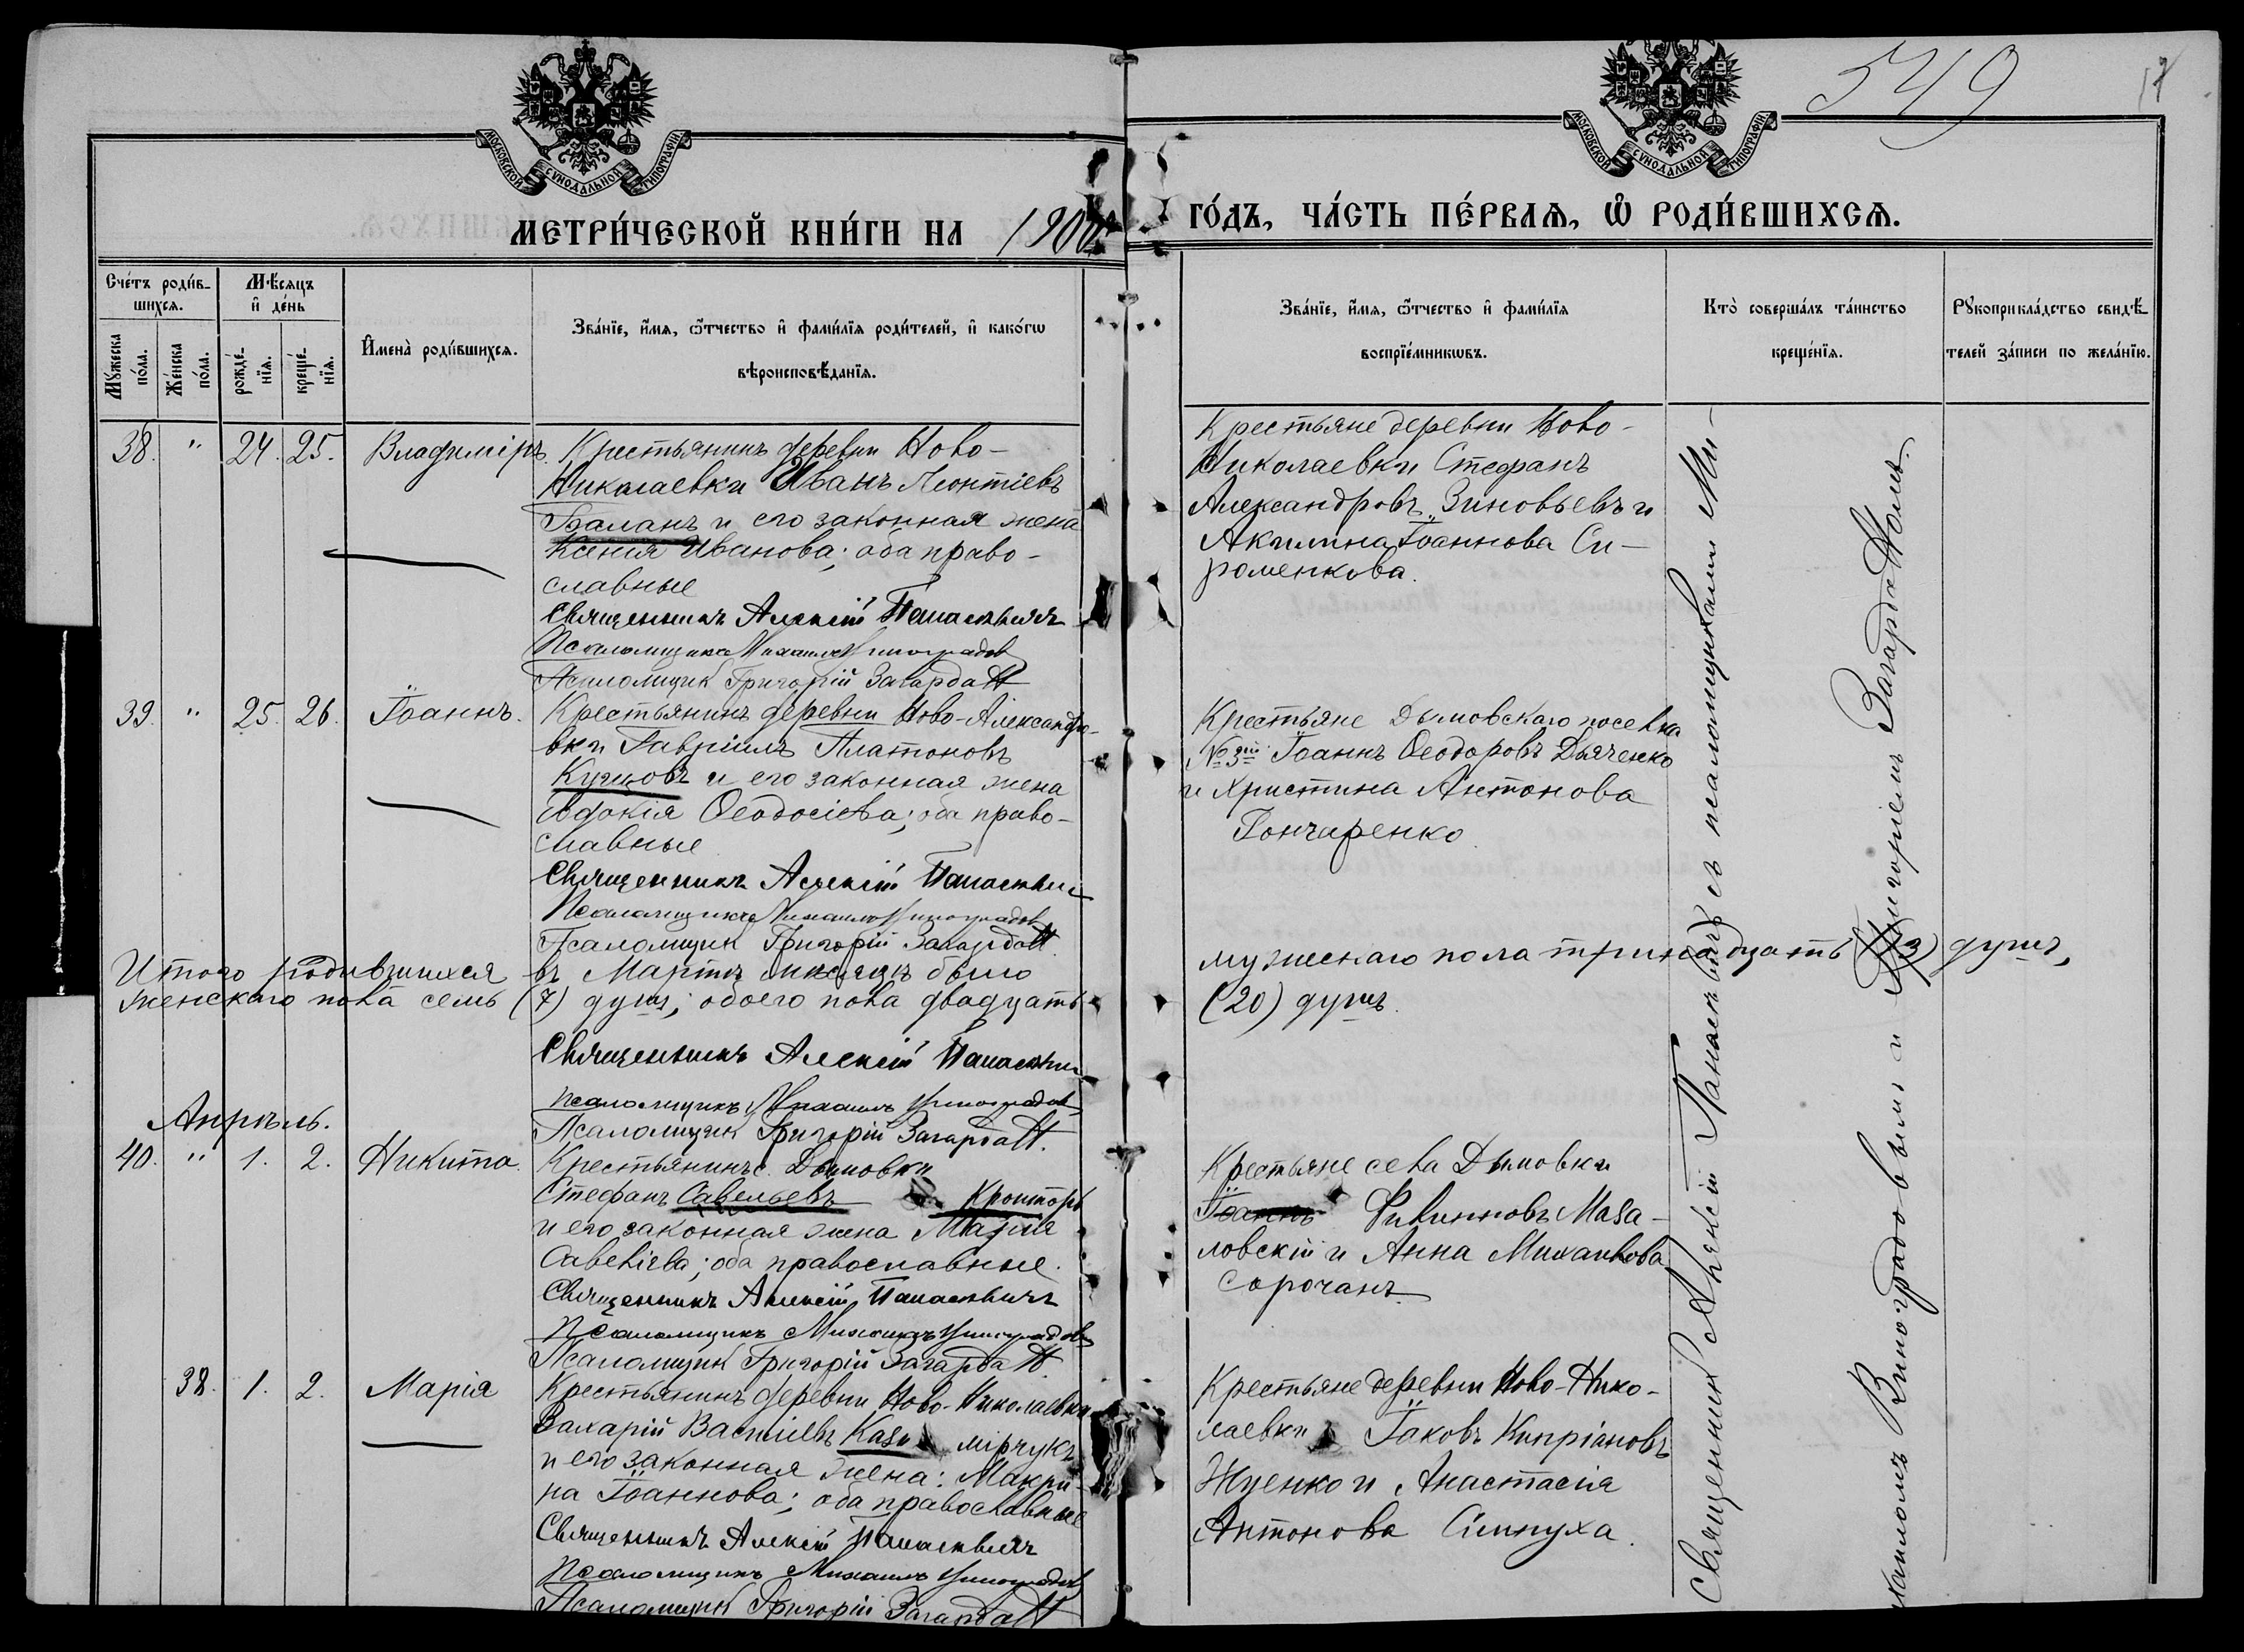 549
МОСКОВСКОЙ СѴНОДАЛЬНОЙ ТИПОГРАФІИ
МОСКОВСКОЙ СѴНОДАЛЬНОЙ ТИПОГРАФІИ
МЕТРИ́ЧЕСКОЙ КНИ́ГИ НА
ГО́ДЪ, ЧА́СТЬ ПЕ́РВАѦ, Ѡ҆ РОДИ́ВШИХСѦ.
Сче́тъ роди́в-
шихсѧ.
Мꙋ́жеска по́ла.
Же́нска по́ла.
Мѣ́сѧцъ
и҆ де́нь
рожде́-
нїѧ.
креще́-
нїѧ.
И҆мена̀ роди́вшихсѧ.
Зва́нїе, и҆́мѧ, ѻ҆́тчество и҆ фами́лїѧ роди́телей, и҆ како́гѡ
вѣроисповѣ́данїѧ.
Зва́нїе, и҆́мѧ, ѻ҆́тчество и҆ фами́лїѧ
воспрїе́мникѡвъ.
Кто̀ соверша́лъ та́инство
креще́нїѧ.
Рꙋкоприкла́дство свидѣ́-
телей за́писи по жела́нїю.
38. " 24. 25. Владиміръ
Крестьянинъ деревни Ново-
Николаевки Иванъ Леонтіевъ
Баланъ и его законная жена
Ксенія Иванова; оба право-
славные
Священникъ Алексій
Псаломщикъ Михаилъ Виноградов
Псаломщик Григорій Загардан
Крестьяне деревни Ново-
Николаевки Стефанъ
Александровъ Зиновьевъ и
Акилина Іоаннова Си-
роменкова.
39. " 25. 26. Іоаннъ.
Крестьянинъ деревни Ново-Александро-
вки Гавріилъ Платоновъ
и его законная жена
Евдокія Ѳеодосіева; оба право-
славные
Священникъ Алексій
Псаломщикъ Михаилъ Виноградов
Псаломщик Григорій
Крестьяне Дымовскаго поселка
№ 3й Іоаннъ Ѳеодоровъ Дьяченко
и Христина Антонова
Гончаренко
Итого родившихся въ Мартѣ мѣсяцѣ было мужескаго пола тринадцать (13) душъ,
женскаго пола семь (7) душъ; обоего пола двадцать (20) душъ.
Священникъ Алексій
Псаломщикъ Михаилъ Виноградов
Псаломщик Григорій
Апрѣль.
40. " 1. 2. Никита
Крестьянинъ с. Дымовки
Стефанъ Савельевъ
и его законная жена Марія
Савеліева; оба православные.
Священникъ Алексій
Псаломщикъ Михаилъ Виноградов
Псаломщик Григорій
Крестьяне села Дымовки
Іоаннъ Филипповъ Маза-
ловскій и Анна Михаилова
Сорочанъ
38. 1. 2. Марія
Крестьянинъ деревни Ново-Николаевки
Захарій Василіевъ
и его законная жена: Макри-
на Іоаннова; оба православные
Священникъ Алексій
Псаломщикъ Михаилъ Виноградов
Псаломщик Григорій
Крестьяне деревни Ново-Нико-
лаевки Іаковъ Кипріановъ
и Анастасія
Антонова
Священникъ Алексій съ псаломщиками Ми-
хаиломъ Виноградовымъ и Григоріемъ